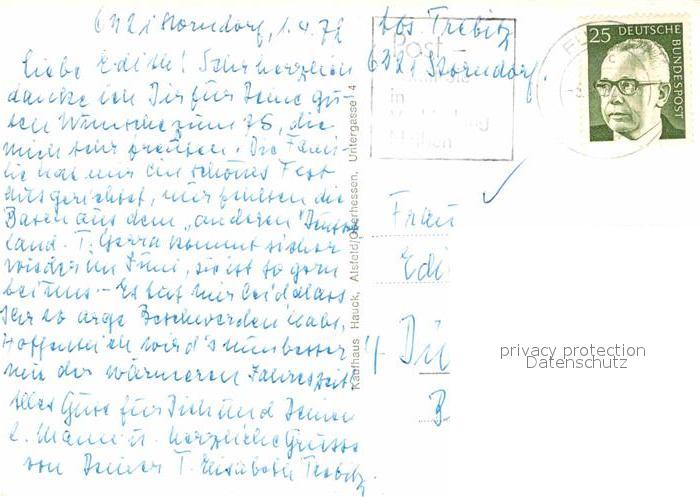 6421 Storndorf, 1.4.72
Liebe Edith! Sehr herzlich
danke ich Dir für Deine gu-
ten Wünsche zum 75., die
mich sehr freuten. Die Fami-
lie hat mir ein schönes Fest
ausgerichtet, nur fehlten die
Basen aus dem „anderen" Deutsch
land. T. Gerra kommt sicher
wieder im Juni, sie ist so gern
bei uns. – Es tut mir leid dass
Ihr so arge Beschwerden habt.
Hoffentlich wird's nun besser
mit der wärmeren Jahreszeit.
Alles Gute für Dich und Deinen
l. Mann u. herzliche Grüsse
von Deiner T. Elisabeth Trebitz.
Kaufhaus Hauck, Alsfeld/Oberhessen, Untergasse 4
Abs. Trebitz
6421 Storndorf.
Post –
in
25 DEUTSCHE BUNDESPOST
Frau
Edi
4 Dü
B
privacy protection
Datenschutz